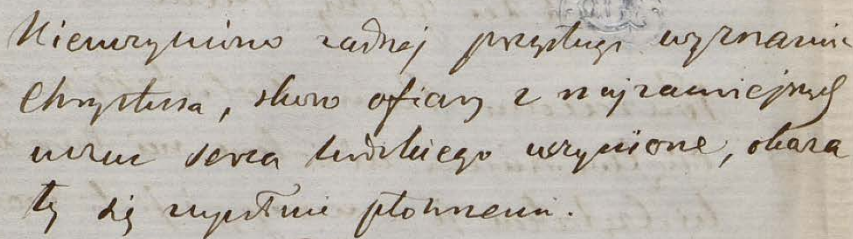 Nieuczyniono żadnej przysługi wyznaniu
Chrystusa, skoro ofiary z najzacniejszych
uczuć serca ludzkiego uczynione, okaza
ły się zupełnie płonnemi.